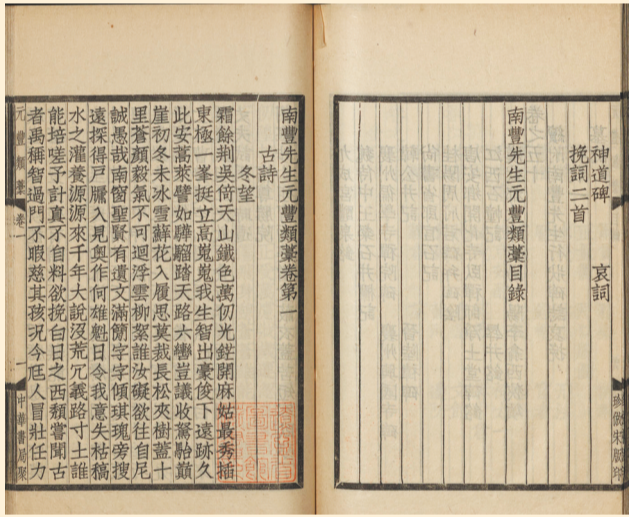 神道碑 哀詞
挽詞二首
南豐先生元豐類藁目錄
珍倣宋版印
南豐先生元豐類藁卷第一
古詩
冬望
霜餘荆吳倚天山鐵色萬仞光鋩開麻姑最秀插
東極一峯挺立高嵬嵬我生智出豪俊下遠跡久
此安蒿萊譬如驊騮踏天路六轡豈議收駑駘巔
崖初冬未冰雪蘚花入履思莫裁長松夾樹蓋十
里蒼顏毅氣不可迴浮雲柳絮誰汝礙欲往自尼
誠愚哉南窗聖賢有遺文滿簡字字傾琪瑰旁搜
遠探得戶牖入見奧作何雄魁日令我意失枯槁
水之灌養源源來千年大說沒荒冗義路寸土誰
能培嗟予計真不自料欲挽白日之西頹嘗聞古
者禹稱智過門不暇慈其孩況今尫人冒壯任力
元豐類藁 卷一
一 中華書局聚